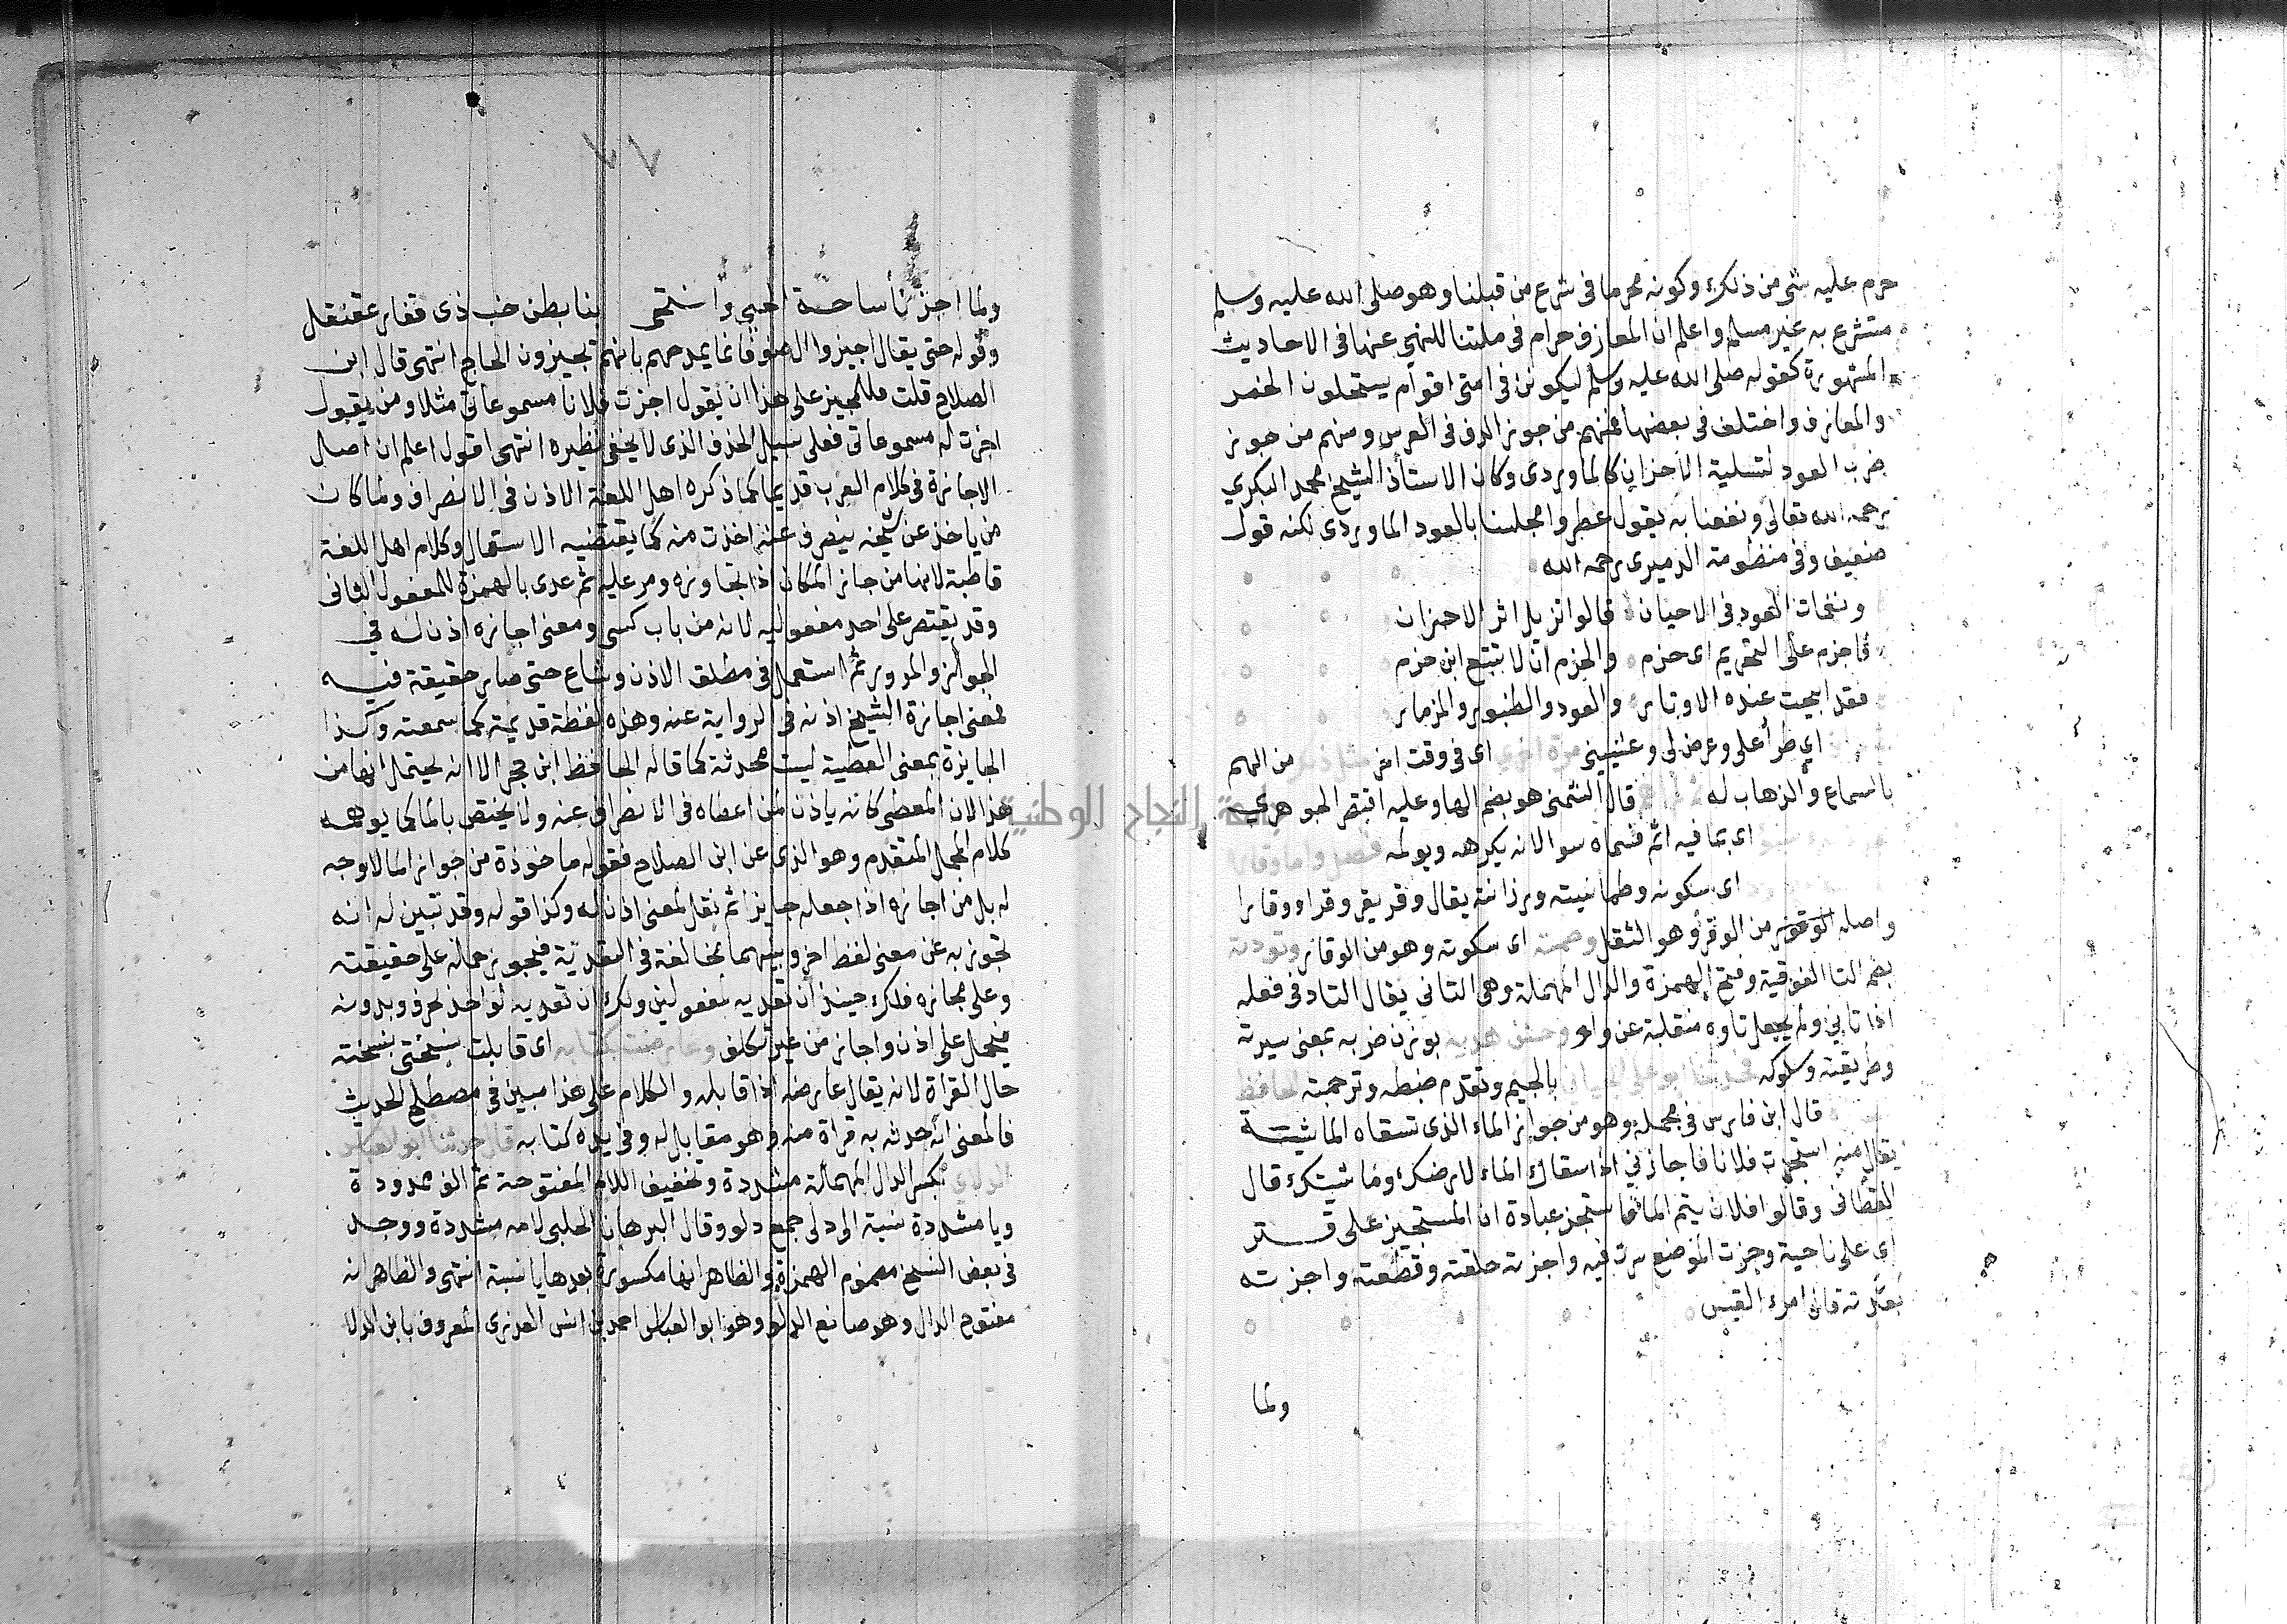 حرم عليه شي من ذلك وكونه محرما في شرع من قبلنا وهو صلى الله عليه وسلم
متشرع به غير مسلم واعلم ان المعازف حرام في ملتنا للنهي عنها في الاحاديث
المشهورة كقوله صلى الله عليه وسلم ليكونن في امتى اقوام يستحلون الخمر
والمعازف واختلف في بعضها فمنهم من جوز الدف في العرس ومنهم من جوز
ضرب العود لتسلية الاحزان كالماوردى وكان الاستاذ الشيخ محمد البكري
رحمه الله تعالى ونفعنا به يقول عطروا مجلسنا بالعود الماوردى لكنه قول
ضعيف وفي منظومة الدميرى رحمه الله
ونغمات العود في الاحيان قالوا تزيل اثر الاحزان
فاجزم على التحريم اى حزم والحزم ان لا تتبع ابن حزم
فقد ابيحت عنده الاوتار والعود والطنبور والمزمار
اي طرأ على وعرض لى وغشيني مرة اخرى اى في وقت اخر من الهم
بالسماع والذهاب له قال الشمنى هو بضم الها وعليه اقتصر الجوهري
اى بما فيه اثم فسماه سوا لانه يكرهه ويولمه
اى سكونه وطمانيته ورزانته يقال وقر يقر وقراء وقارا
واصله الوقور من الوقر وهو الثقل وصمته اى سكوته وهو من الوقار وتودته
بضم التا الفوقية وفتح الهمزة والدال المهملة وهى التاني يقال التاد في فعله
اذا تاني ولم يجعل تاوه منقلبة عن واو وحسن هديه بوزن ضربه بمعنى سيرته
وطريقته وسلوكه حدثنا ابو على الجياني بالجيم وتقدم ضبطه وترجمته الحافظ
قال ابن فارس في مجمله وهو من جواز الماء الذى تسقاه الماشية
يقال منه استجزت فلانا فاجازني اذا سقاك الماء لارضك وماشيتك قال
القطانى وقالوا فلان يتم الما فاستجز عبادة ان المستجيز على قتر
اى على ناحية وجزت الموضع سرت فيه واجزته خلفته وقطعته واجزته
نفذته قال امرء القيس
ولما
٧٧
ولما اجزنا ساحة الحى وانتحى بنا بطن خبت ذى قفار عقنقل
وقوله حتى يقال اجيزوا ال صوفانا يمدحهم بانهم يجيزون الحاج انتهى قال ابن
الصلاح قلت فللمجيز على هذا ان يقول اجزت فلانا مسموعاتى مثلا ومن يقول
اجزت له مسموعاتى فعلى سبيل الحذف الذى لا يخفى نظيره انتهى اقول اعلم ان اصل
الاجازة في كلام العرب قديما كما ذكره اهل اللغة الاذن في الانصراف ولما كان
من ياخذ عن شيخه ينصرف عنه اخذت منه كما يقتضيه الاستعمال وكلام اهل اللغة
قاطبة لانها من جاز المكان اذا تجاوزه ومر عليه ثم عدى بالهمزة للمفعول الثانى
وقد يقتصر على احد مفعوليه لانه من باب كسى ومعنى اجازه اذن له في
الجواز والمرور ثم استعمل في مطلق الاذن وشاع حتى صار حقيقة فيه
فمعنى اجازة الشيخ اذنه في الرواية عنه وهذه لفظة قديمة كما سمعته وكذا
الجايزة بمعنى العطية ليست محدثة كما قاله الحافظ ابن حجر الا انه يحتمل انها من
هذا لان المعطى كانه ياذن لمن اعطاه في الانصراف عنه ولا يختص بالما كما يوهمه
كلام المجمل المتقدم وهو الذى عن ابن الصلاح فقوله ماخوذة من جواز الما لا وجه
له بل من اجازه اذا جعله جايزا ثم نقل لمعنى اذن له وكذا قوله وقد تبين له انه
تجوز به عن معنى لفظ اخر وبينهما مخالفة في التعدية فيجوز حمله على حقيقته
وعلى مجازه فلك حينئذ ان تعديه لمفعولين ولك ان تعديه لواحد بحرف وبدونه
فيحمل على اذن واجاز من غير تكلف وعارضت بكتابه اى قابلت نسختى بنسخته
حال القراة لانه يقال عارضه اذا قابله والكلام على هذا مبين في مصطلح الحديث
فالمعنى انه حدثه به قراة منه وهو مقابل له وفي يده كتابه قال حدثنا ابو العباس
الدلاي بكسر الدال المهملة مشددة وتخفيف اللام المفتوحة ثم الف ممدودة
ويا مشددة نسبة الى دلى جمع دلو وقال البرهان الحلبى لامه مشددة ووجد
في بعض النسخ مضموم الهمزة والظاهر انها مكسورة بعدها يا نسبة انتهى والظاهر انه
مفتوح الدال وهو صانع الدلو وهو ابو العباس احمد بن انس العذرى المعروف بابن الدلا
جامعة النجاح الوطنية